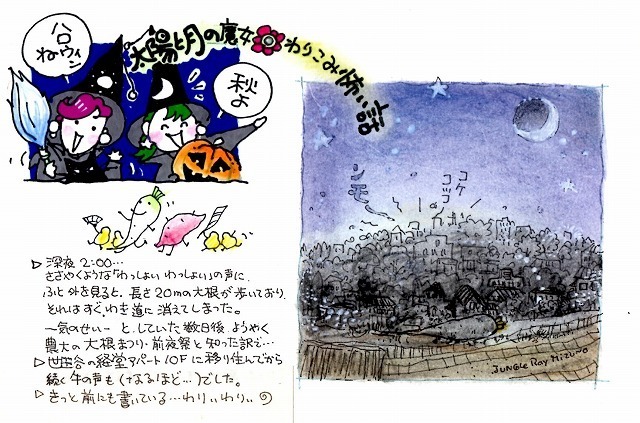 太陽と月の魔女わりこみ怖い話
谷ねウィン
秋よ
▷深夜2:00…
ささやくような「わっしょいわっしょい」の声に、
ふと外を見ると、長さ20mの大根が歩いており、
それはすぐわき道に消えてしまった。
―気のせい― と、していた数日後、ようやく
農大の大根まつり・前夜祭と知った訳で…
▷世田谷の経堂アパート10Fに移り住んでから
続く牛の声も(なるほど…)でした。
▷きっと前にも書いている…わりぃわりぃ
コケコッコ
ンモ〜
JUNGLE Ray MIZUNO